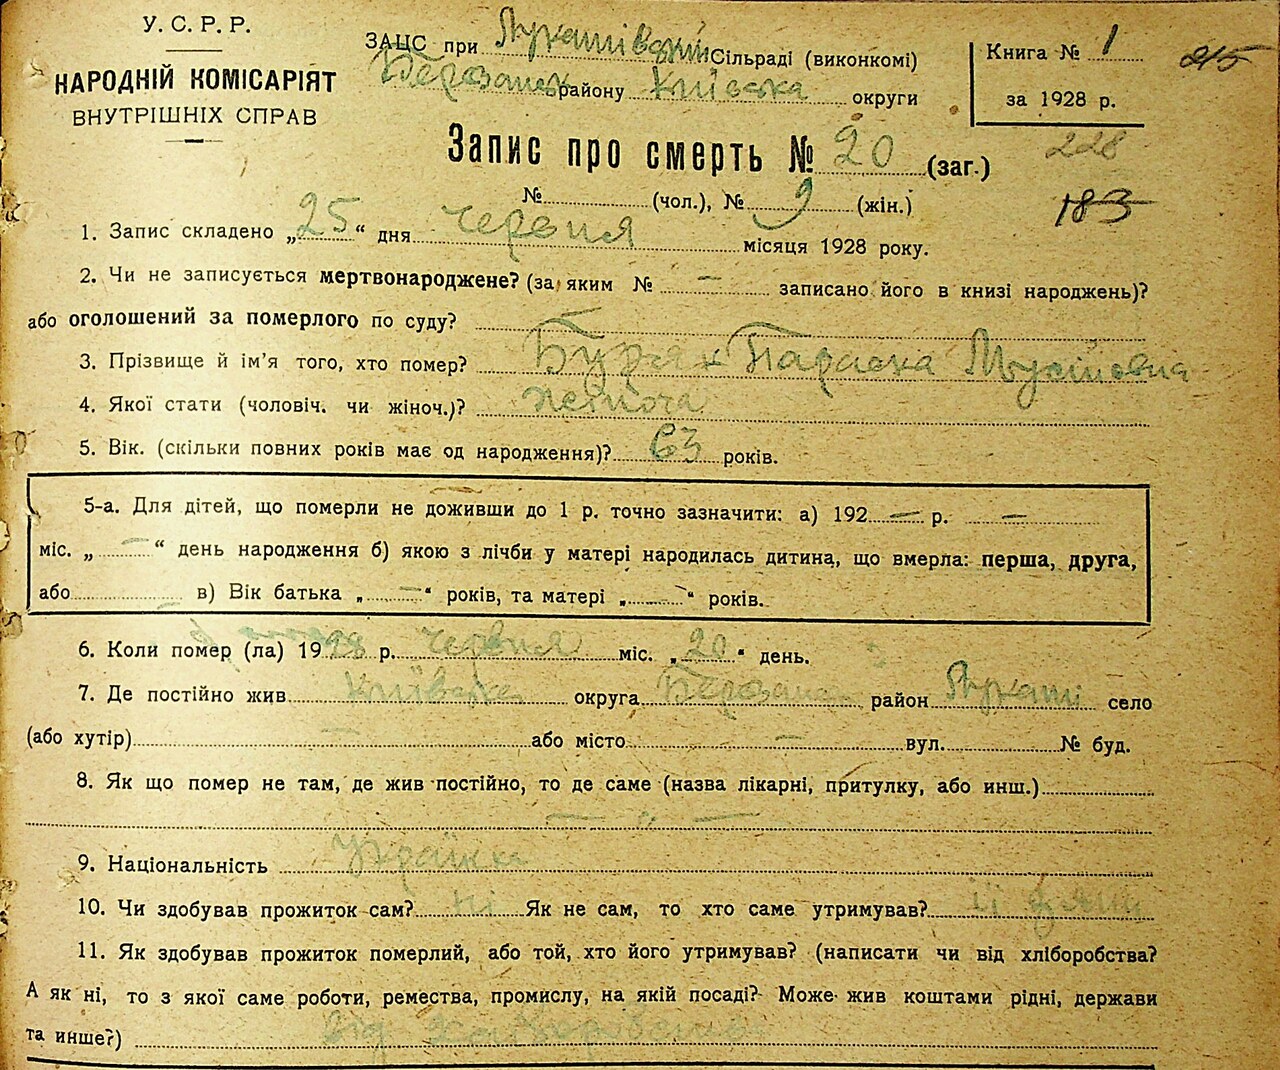 У. С. Р. Р.
НАРОДНІЙ КОМІСАРІЯТ
ВНУТРІШНІХ СПРАВ
ЗАЦС при Лукашівській Сільраді (виконкомі)
Березанськ району Київська округи
Книга № 1
за 1928 р.
215
228
183
Запис про смерть № 20 (заг.)
№ (чол.), № 9 (жін.)
1. Запис складено „25“ дня червня місяця 1928 року.
2. Чи не записується мертвонароджене? (за яким № — записано його в книзі народжень)?
або оголошений за померлого по суду?
3. Прізвище й ім'я того, хто помер? Буряк Параска Мусіївна
4. Якої стати (чоловіч. чи жіноч.)? жіноча
5. Вік. (скільки повних років має од народження)? 63 років.
5-а. Для дітей, що померли не доживши до 1 р. точно зазначити: а) 192 — р. —
міс. „ — “ день народження б) якою з лічби у матері народилась дитина, що вмерла: перша, друга,
або — в) Вік батька „ — “ років, та матері „ — “ років.
6. Коли помер (ла) 1928 р. червня міс. „20“ день.
7. Де постійно жив Київська округа Березанськ район Лукаші село
(або хутір) — або місто — вул. № буд.
8. Як що помер не там, де жив постійно, то де саме (назва лікарні, притулку, або инш.)
— „ —
9. Національність Українка
10. Чи здобував прожиток сам? ні Як не сам, то хто саме утримував? її
11. Як здобував прожиток померлий, або той, хто його утримував? (написати чи від хліборобства?
А як ні, то з якої саме роботи, ремества, промислу, на якій посаді? Може жив коштами рідні, держави
та инше?) від хліборобства